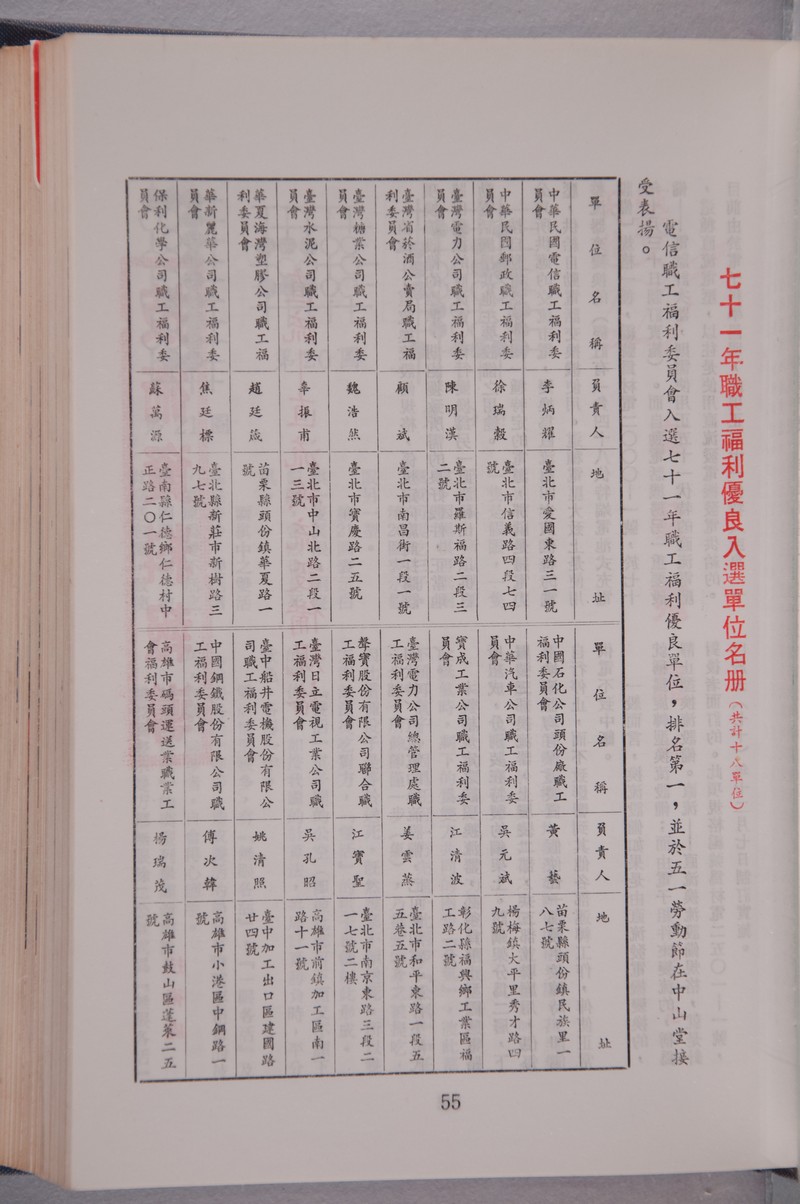 七十一年職工福利優良入選單位名册(共計十八單位)
電信職工福利委員會入選七十一年職工福利優良單位，排名第一，並於五一勞動節在中山堂接
受表揚。
單位名稱
負責人
地址
中華民國電信職工福利委
員會
李炳耀
臺北市愛國東路三一號
中華民國郵政職工福利委
員會
徐瑞穀
臺北市信義路四段七四
號
臺灣電力公司職工福利委
員會
陳明漢
臺北市羅斯福路二段三
二號
臺灣省菸酒公賣局職工福
利委員會
顧斌
臺北市南昌街一段一號
臺灣糖業公司職工福利委
員會
魏浩然
臺北市寶慶路二五號
臺灣水泥公司職工福利委
員會
辜振甫
臺北市中山北路二段一
一三號
華夏海灣塑膠公司職工福
利委員會
趙廷箴
苗栗縣頭份鎮華夏路一
號
華新麗華公司職工福利委
員會
焦廷標
臺北縣新莊市新樹路三
九七號
保利化學公司職工福利委
員會
蘇萬源
臺南縣仁德鄉仁德村中
正路二〇一號
單位名稱
負責人
地址
中國石化公司頭份廠職工
福利委員會
黃藝
苗栗縣頭份鎮民族里一
八七號
中華汽車公司職工福利委
員會
吳元斌
楊梅鎮大平里秀才路四
九號
寶成工業公司職工福利委
員會
江清波
彰化縣福興鄉工業區福
工路二號
臺灣電力公司總管理處職
工福利委員會
姜雲蒸
臺北市和平東路一段五
五巷五號
聲寶股份有限公司聯合職
工福利委員會
江寶聖
臺北市南京東路三段二
一七號二樓
臺灣日立電視工業公司職
工福利委員會
吳孔昭
高雄市前鎮加工區南一
路十一號
臺中船井電機股份有限公
司職工福利委員會
姚清照
臺中加工出口區建國路
廿四號
中國鋼鐵股份有限公司職
工福利委員會
傅次韓
高雄市小港區中鋼路一
號
高雄市碼頭運送業職業工
會福利委員會
楊瑞茂
高雄市鼓山區蓬萊二五
號
55